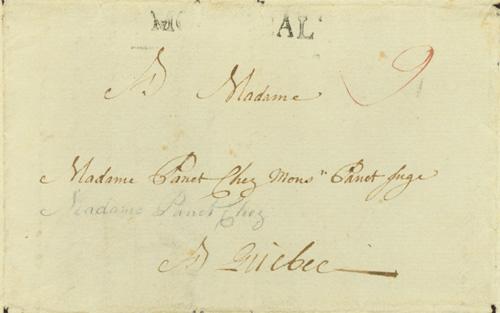 MO AL
A Madame 9
Madame Panet Chez Mons.r Panet Juge
Madame Panet Chez
A Quebec